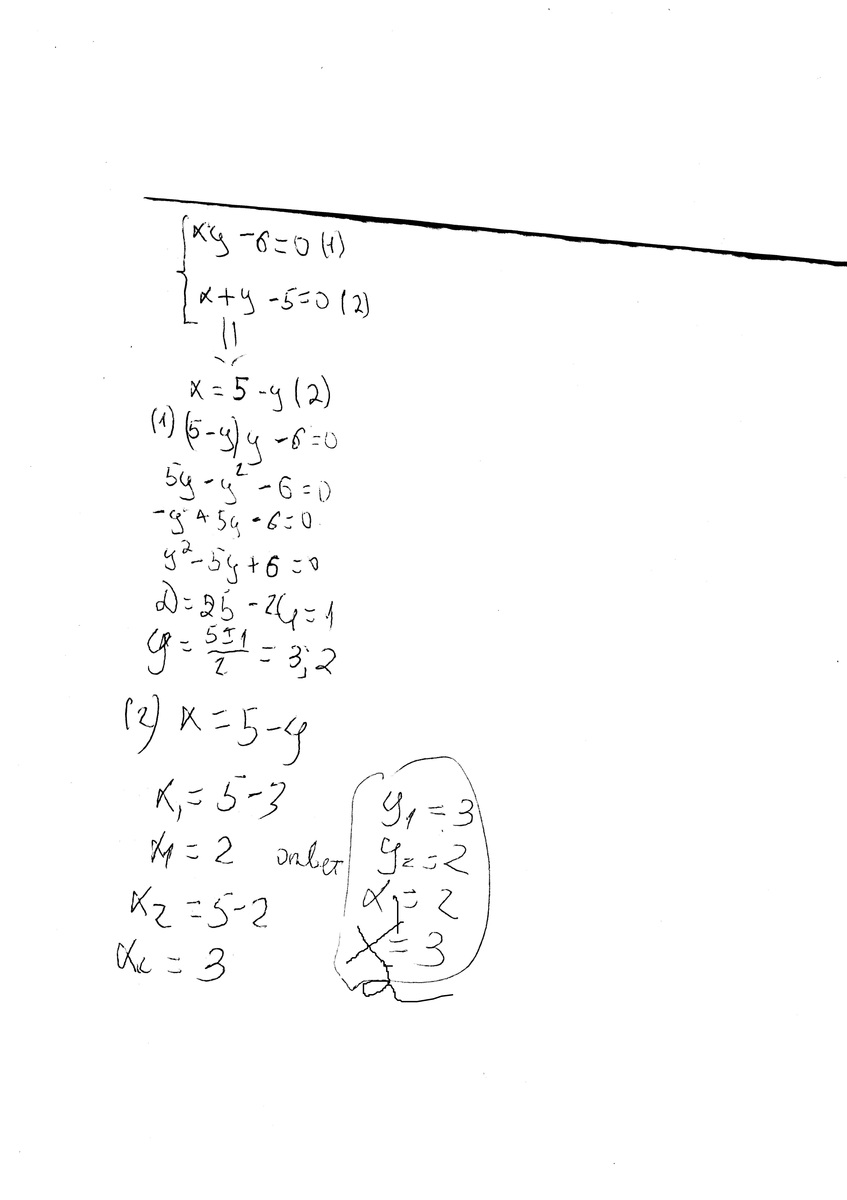 xy - 6 = 0 (1)
x + y - 5 = 0 (2)
x = 5 - y (2)
(1) (5 - y) y - 6 = 0
5y - y² - 6 = 0
-y² + 5y - 6 = 0
y² - 5y + 6 = 0
D = 25 - 24 = 1
y = (5 ± 1)/2 = 3; 2
(2) x = 5 - y
x₁ = 5 - 3
x₁ = 2
x₂ = 5 - 2
x₂ = 3
ответ
y₁ = 3
y₂ = 2
x₁ = 2
x₂ = 3